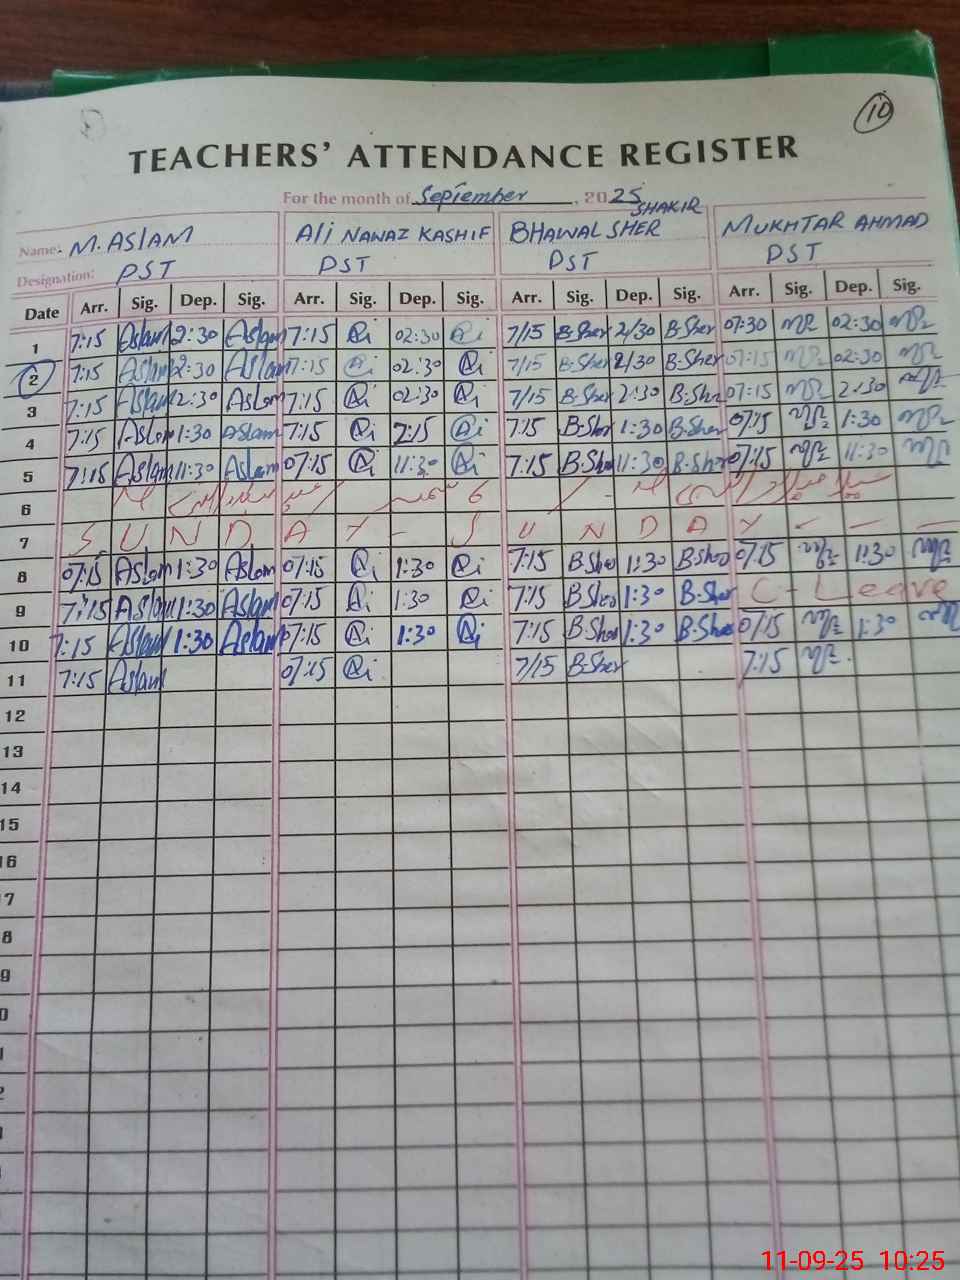 10
TEACHERS' ATTENDANCE REGISTER
For the month of September, 2025
Name: M. ASLAM ALi NAWAZ KASHIF BHAWAL SHER SHAKIR MUKHTAR AHMAD
Designation: PST PST PST PST
Date Arr. Sig. Dep. Sig. Arr. Sig. Dep. Sig. Arr. Sig. Dep. Sig. Arr. Sig. Dep. Sig.
1 7:15 Aslam 2:30 Aslam 7:15 02:30 7/15 B-Sher 2/30 B-Sher 07:30 02:30
2 7:15 Aslam 2:30 Aslam 7:15 02:30 7/15 B-Sher 2/30 B-Sher 07:15 02:30
3 7:15 Aslam 2:30 Aslam 7:15 02:30 7/15 B-Sher 2:30 B-Sher 07:15 2:30
4 7:15 Aslam 1:30 Aslam 7:15 7:15 B-Sher 1:30 B-Sher 07:15 1:30
5 7:15 Aslam 11:30 Aslam 07:15 11:30 7:15 B-Sher 11:30 B-Sher 07:15 11:30
6
7 S U N D A Y - S U N D A Y - - -
8 07:15 Aslam 1:30 Aslam 07:15 1:30 7:15 B-Sher 1:30 B-Sher 07:15 1:30
9 7:15 Aslam 1:30 Aslam 07:15 1:30 7:15 B-Sher 1:30 B-Sher C - Leave
10 7:15 Aslam 1:30 Aslam 07:15 1:30 7:15 B-Sher 1:30 B-Sher 07:15 1:30
11 7:15 Aslam 07:15 7/15 B-Sher 7:15
12
13
14
15
16
7
8
9
0
11-09-25 10:25